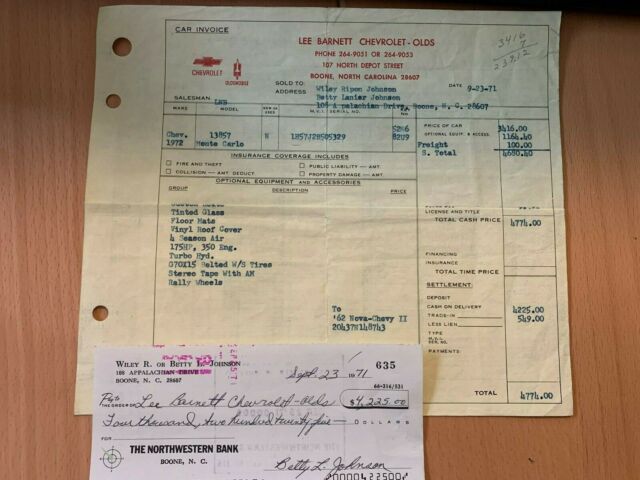 CAR INVOICE
LEE BARNETT CHEVROLET-OLDS
PHONE 264-9051 OR 264-9053
107 NORTH DEPOT STREET
BOONE, NORTH CAROLINA 28607
CHEVROLET
OLDSMOBILE
3416
7
SOLD TO:
ADDRESS
Wiley Ripon Johnson
Betty Lanier Johnson
Boone, N. C. 28607
DATE 9-23-71
SALESMAN LNB
MAKE MODEL NEW OR USED M.V.I. SERIAL NO. NO.
Chev. 13857 N 1H57J2B505329 5286
1972 Monte Carlo 8209
PRICE OF CAR 3416.00
OPTIONAL EQUIP. & ACCESS. 1164.40
Freight 100.00
S. Total 4680.40
INSURANCE COVERAGE INCLUDES
FIRE AND THEFT PUBLIC LIABILITY — AMT.
COLLISION — AMT. DEDUCT. PROPERTY DAMAGE — AMT.
OPTIONAL EQUIPMENT AND ACCESSORIES
GROUP DESCRIPTION PRICE
Tinted Glass
Floor Mats
Vinyl Roof Cover
4 Season Air
175HP, 350 Eng.
Turbo Hyd.
G70X15 Belted W/S Tires
Stereo Tape With AM
Rally Wheels
LICENSE AND TITLE
TOTAL CASH PRICE 4774.00
FINANCING
INSURANCE
TOTAL TIME PRICE
SETTLEMENT:
DEPOSIT
CASH ON DELIVERY 4225.00
TRADE-IN 549.00
LESS LIEN
TYPE
M.V.I.
SER. NO.
PAYMENTS:
TOTAL 4774.00
To
'62 Nova-Chevy II
20437N148743
WILEY R. OR BETTY L. JOHNSON
188 APPALACHIAN DRIVE
BOONE, N. C. 28607
635
Sept. 23 1971
66-316/531
Pay to THE ORDER OF Lee Barnett Chevrolet-Olds $4,225.00
Four thousand, two hundred twenty five DOLLARS
FOR
THE NORTHWESTERN BANK
BOONE, N. C.
Betty L. Johnson